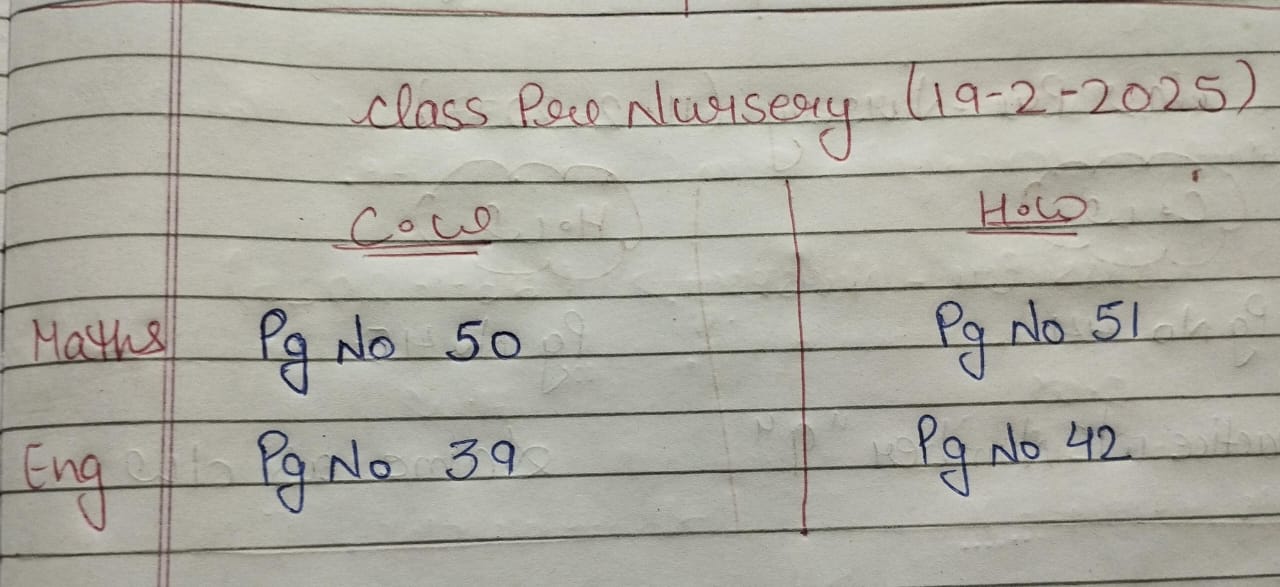 Class Pre Nursery (19-2-2025)
C.W H.W
Maths Pg No 50 Pg No 51
Eng Pg No 39 Pg No 42